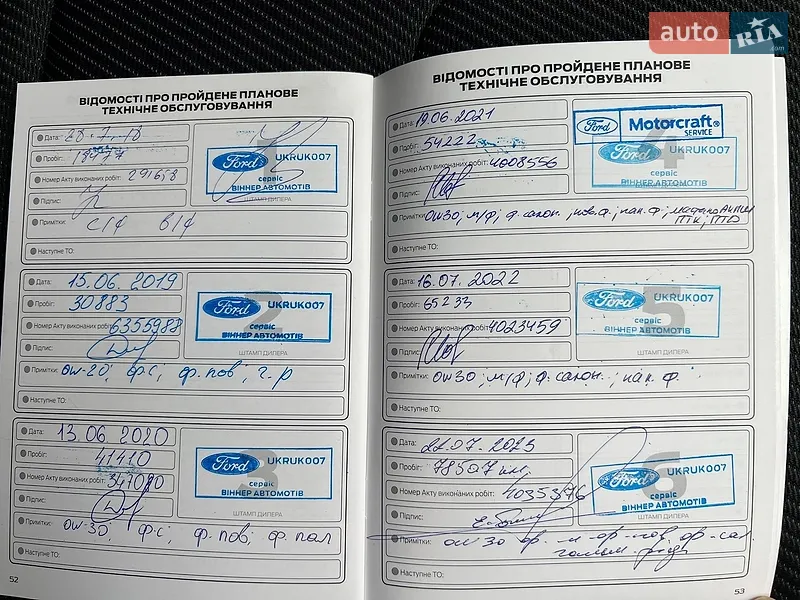 auto RIA.com
ВІДОМОСТІ ПРО ПРОЙДЕНЕ ПЛАНОВЕ
ТЕХНІЧНЕ ОБСЛУГОВУВАННЯ
1
Дата: 28.7.18
Пробіг:
Номер Акту виконаних робіт: 291658
Підпис:
Примітки: с/ф в/ф
Наступне ТО:
Ford UKRUK007
сервіс
ВІННЕР АВТОМОТІВ
ШТАМП ДИЛЕРА
2
Дата: 15.06.2019
Пробіг: 30883
Номер Акту виконаних робіт: 6355988
Підпис:
Примітки: ow-20; ф.с; ф.пов; г.р
Наступне ТО:
Ford UKRUK007
сервіс
ВІННЕР АВТОМОТІВ
ШТАМП ДИЛЕРА
3
Дата: 13.06 2020
Пробіг: 41410
Номер Акту виконаних робіт:
Підпис:
Примітки: ow-30; ф.с; ф.пов; ф пал
Наступне ТО:
Ford UKRUK007
сервіс
ВІННЕР АВТОМОТІВ
ШТАМП ДИЛЕРА
52
ВІДОМОСТІ ПРО ПРОЙДЕНЕ ПЛАНОВЕ
ТЕХНІЧНЕ ОБСЛУГОВУВАННЯ
4
Дата: 19.06.2021
Пробіг: 54222
Номер Акту виконаних робіт: 4008556
Підпис:
Примітки: ow30; м/ф; ф.салон.; пов.ф.; пал.ф;
Наступне ТО:
Ford Motorcraft®
SERVICE
Ford UKRUK007
сервіс
ВІННЕР АВТОМОТІВ
5
Дата: 16.07.2022
Пробіг: 65233
Номер Акту виконаних робіт: 4023459
Підпис:
Примітки: ow30; м/ф; ф.салон.; пал.ф.
Наступне ТО:
Ford UKRUK007
сервіс
ВІННЕР АВТОМОТІВ
ШТАМП ДИЛЕРА
6
Дата: 22.07.2023
Пробіг: 78507 км
Номер Акту виконаних робіт: 4035376
Підпис:
Примітки:
Наступне ТО:
Ford UKRUK007
сервіс
ВІННЕР АВТОМОТІВ
ШТАМП ДИЛЕРА
53